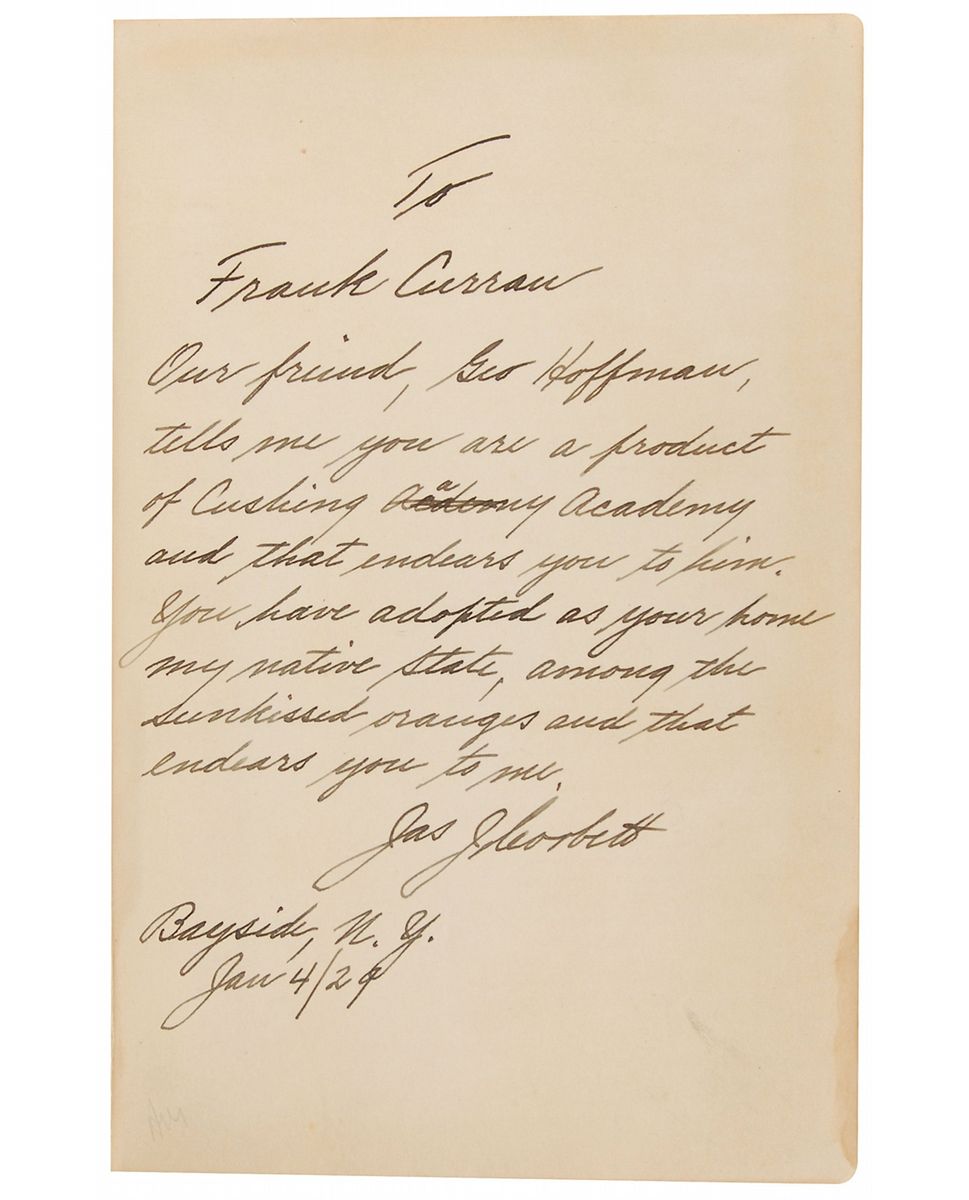 To
Frank Curran
Our friend, Geo Hoffman,
tells me you are a product
of Cushing Acadamy Academy
and that endears you to him.
You have adopted as your home
my native State, among the
sunkissed oranges and that
endears you to me.
Jas J Corbett
Bayside, N. Y.
Jan 4/29